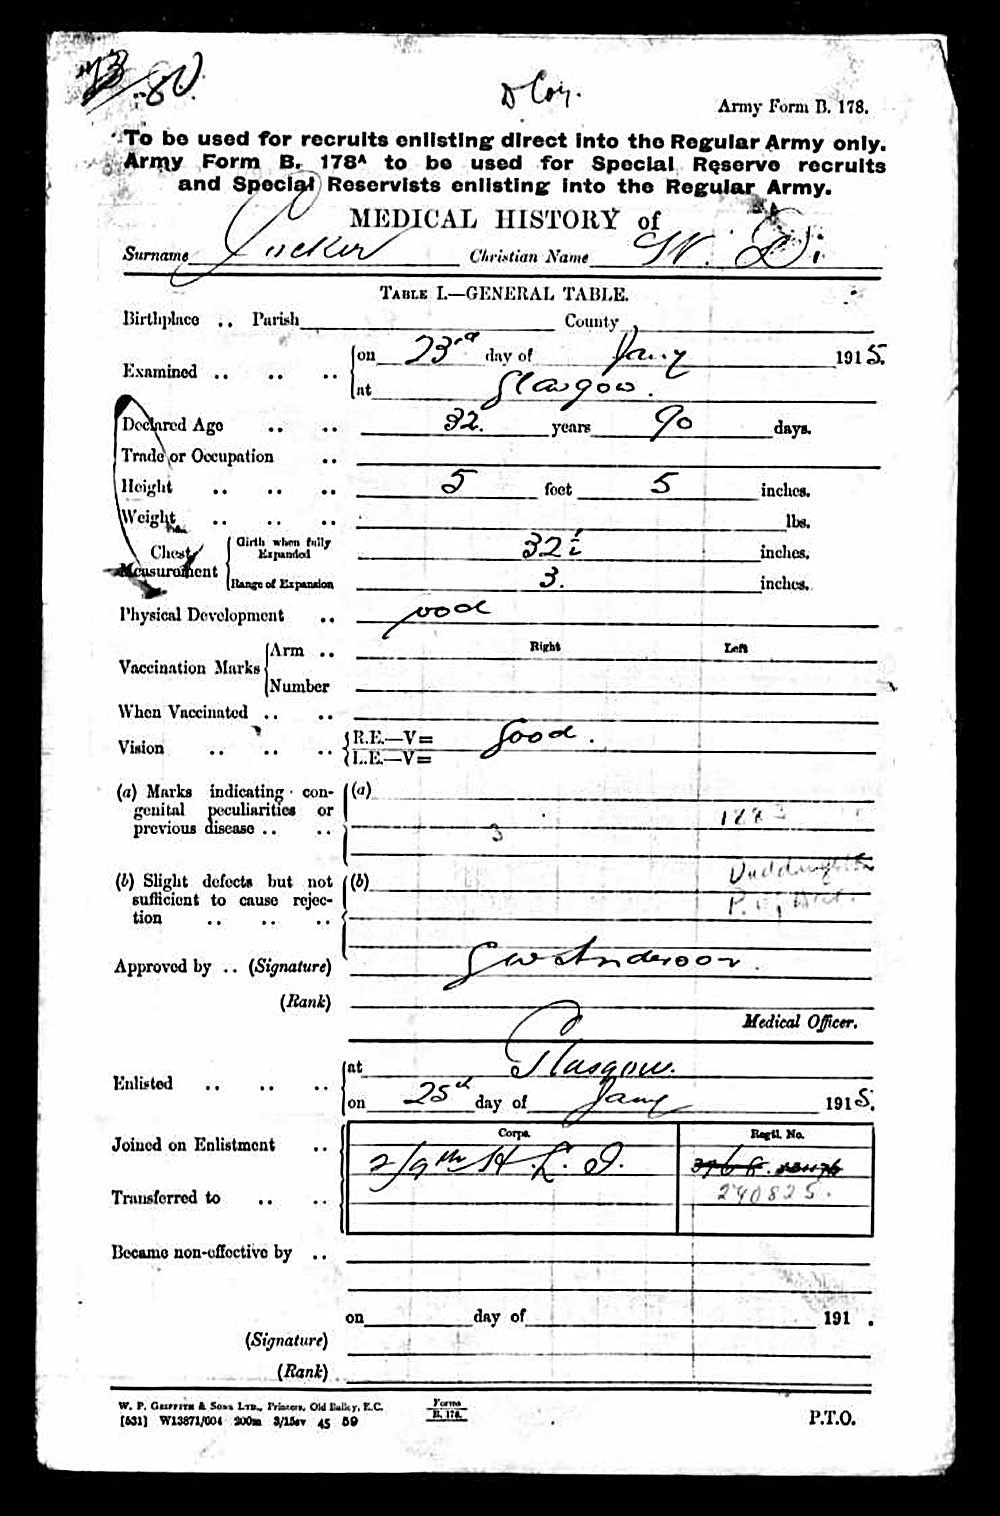 D Coy.
Army Form B. 178.
To be used for recruits enlisting direct into the Regular Army only.
Army Form B. 178A to be used for Special Reserve recruits
and Special Reservists enlisting into the Regular Army.
MEDICAL HISTORY of
Surname Christian Name W. D.
TABLE I.—GENERAL TABLE.
Birthplace .. Parish County
Examined .. .. .. on 23rd day of Jany 1915.
at Glasgow.
Declared Age .. .. 32. years 90 days.
Trade or Occupation ..
Height .. .. .. 5 feet 5 inches.
Weight .. .. .. lbs.
Chest Measurement Girth when fully Expanded 32½ inches.
Range of Expansion 3. inches.
Physical Development .. Good
Right Left
Vaccination Marks Arm ..
Number
When Vaccinated .. ..
Vision .. .. .. R.E.—V= Good.
L.E.—V=
(a) Marks indicating con- (a)
genital peculiarities or
previous disease .. .. 3
(b) Slight defects but not (b)
sufficient to cause rejec-
tion .. .. ..
Approved by .. (Signature) G W Anderson.
(Rank)
Medical Officer.
Enlisted .. .. .. at Glasgow.
on 25th day of Jany 1915.
Corps. Regtl. No.
Joined on Enlistment .. 2/9th H. L. I. 3968.
Transferred to .. .. 290825.
Became non-effective by ..
on day of 191 .
(Signature)
(Rank)
W. P. GRIFFITH & SONS LTD., Printers, Old Bailey, E.C.
[531] W13871/004 200m 3/15sv 45 59
Forms
B. 178.
P.T.O.